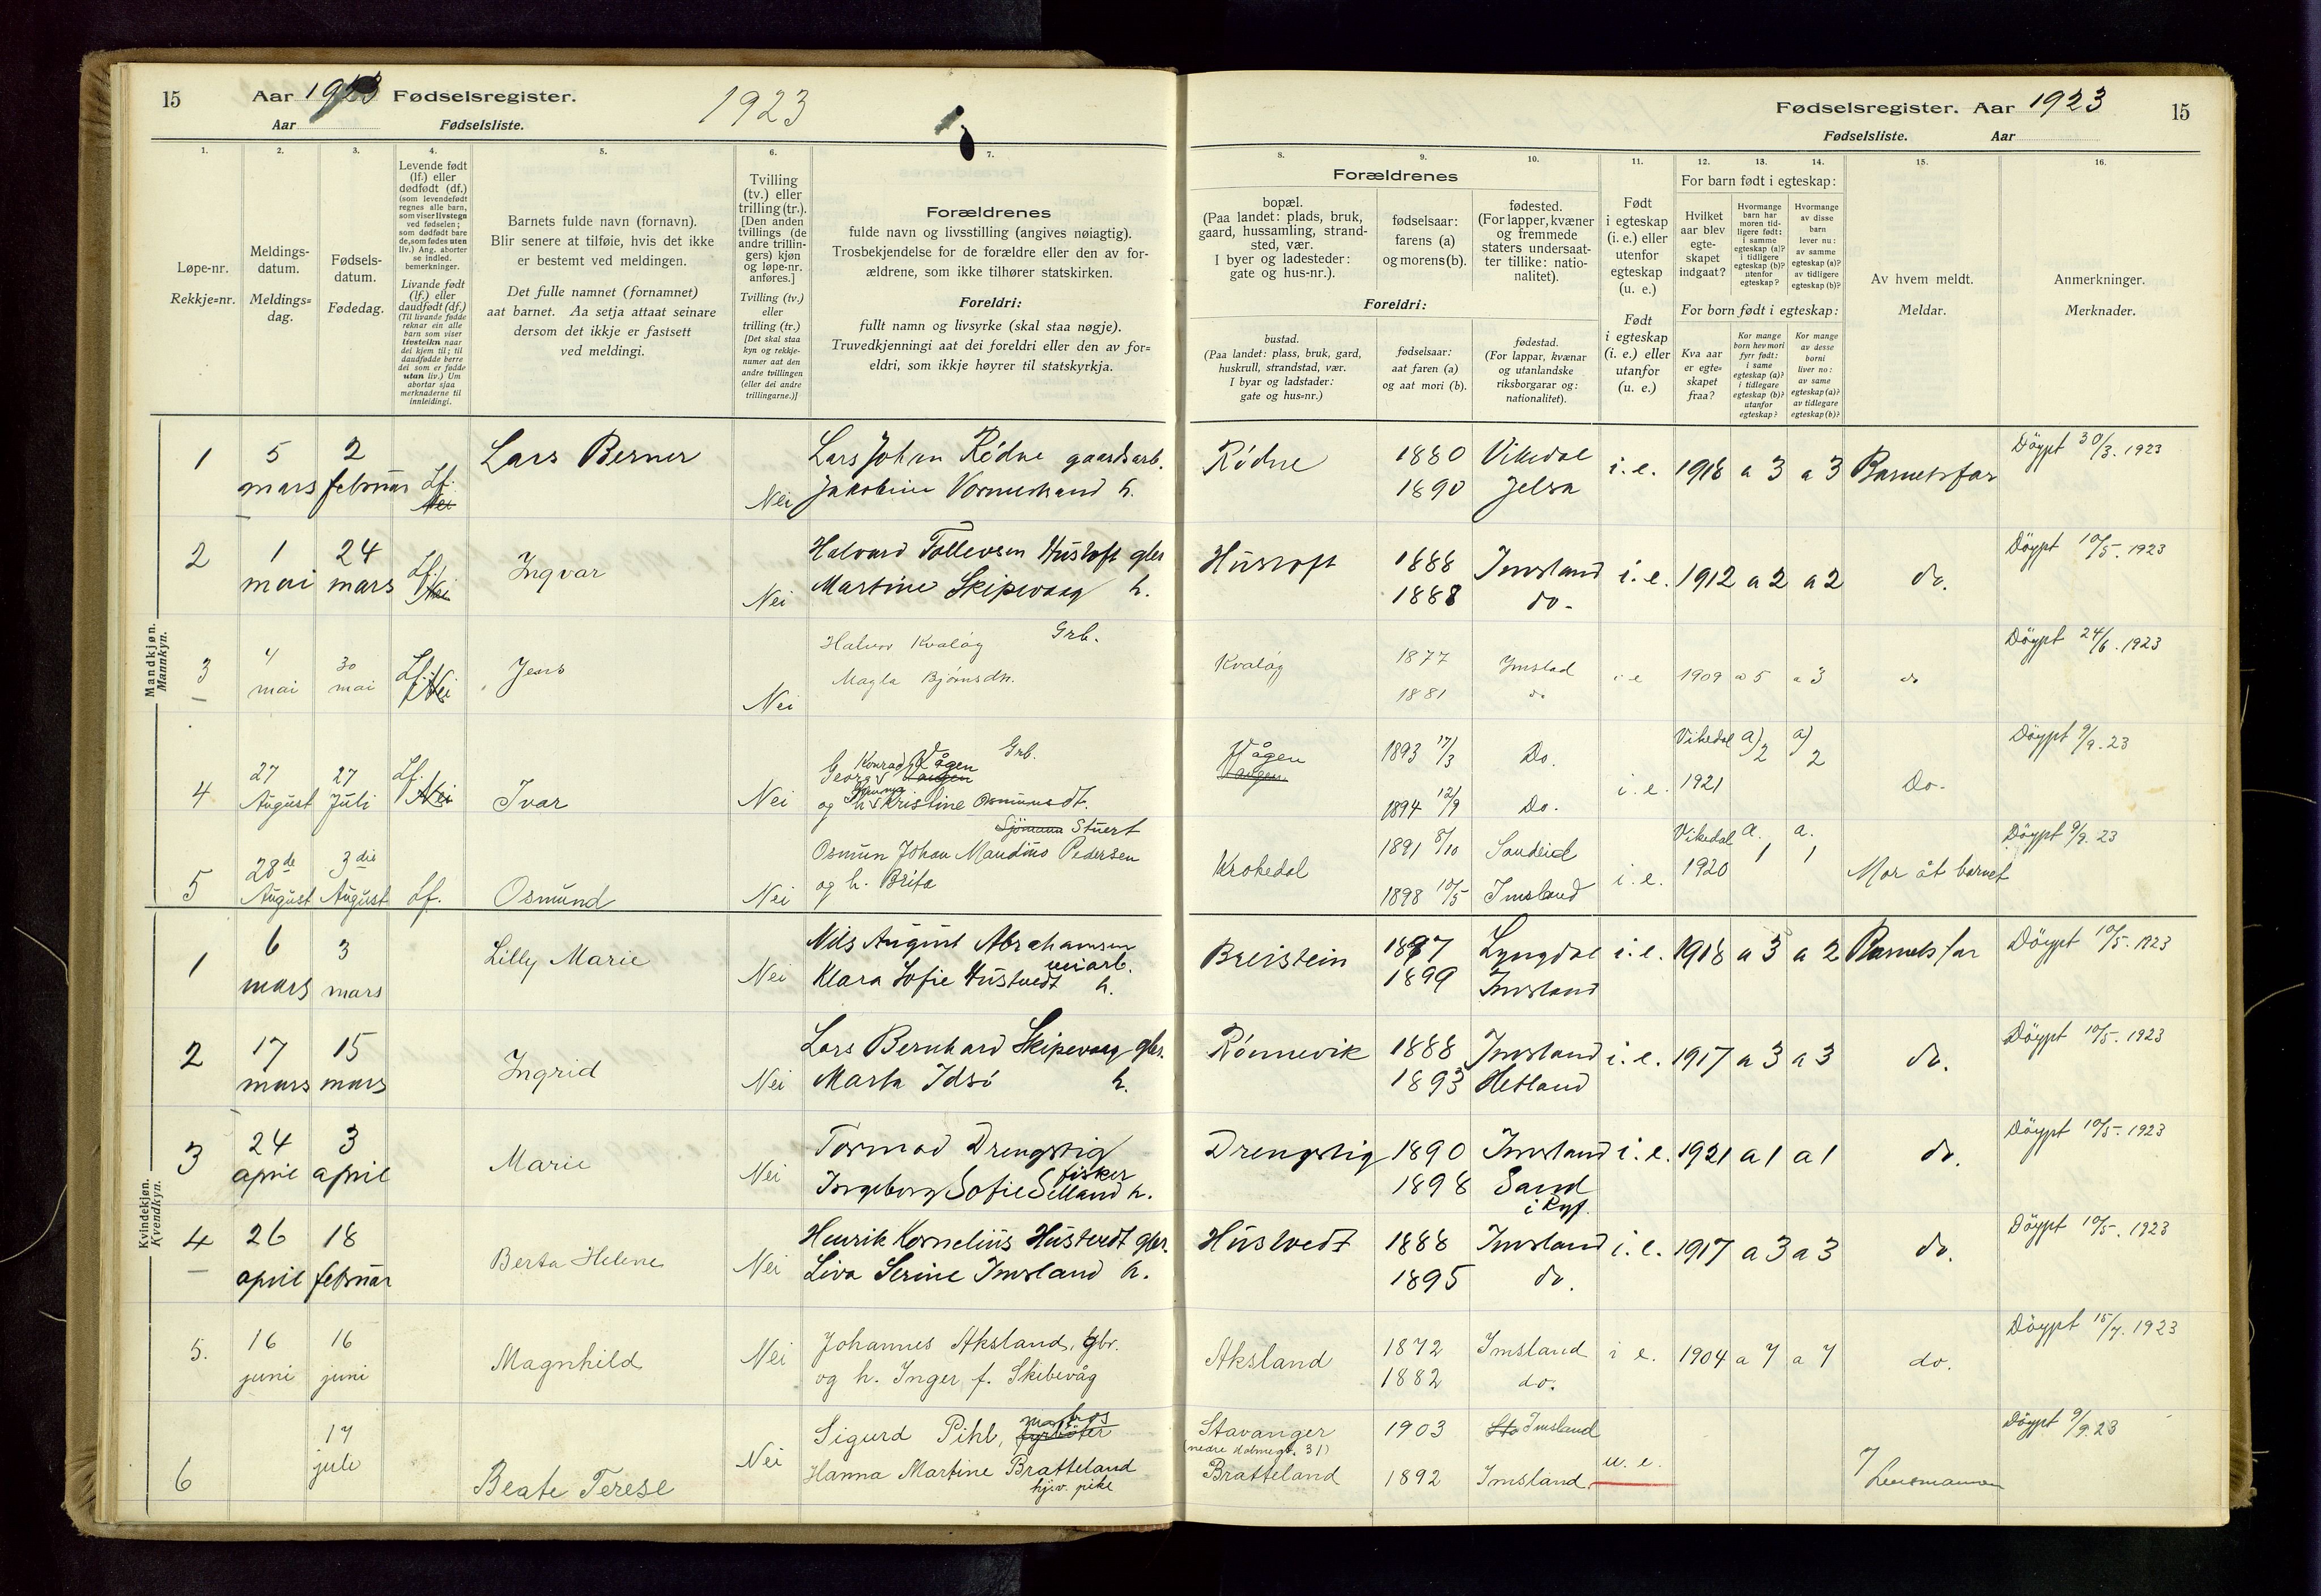 15
Aar 1923 Fødselsregister. 1923
Aar Fødselsliste.
1.
2.
3.
4.
5.
6.
7.
Løpe-nr.
Rekkje=nr.
Meldings-
datum.
Meldings=
dag.
Fødsels-
datum.
Fødedag.
Levende født
(lf.) eller
dødfødt (df.)
(som levendefødt
regnes alle barn,
som viser livstegn
ved fødselen;
som dødfødt bare
de, som fødes uten
liv.) Ang. aborter
se indled.
bemerkninger.
Livande født
(lf.) eller
daudfødt (df.)
(Til livande fødde
reknar ein alle
barn som viser
livsteikn naar
dei kjem til; til
daudfødde berre
dei som er fødde
utan liv.) Um
abortar sjaa
merknaderne til
innleidingi.
Barnets fulde navn (fornavn).
Blir senere at tilføie, hvis det ikke
er bestemt ved meldingen.
Det fulle namnet (fornamnet)
aat barnet. Aa setja attaat seinare
dersom det ikkje er fastsett
ved meldingi.
Tvilling
(tv.) eller
trilling (tr.).
[Den anden
tvillings (de
andre trillin-
gers) kjøn
og løpe-nr.
anføres.]
Tvilling (tv.)
eller
trilling (tr.)
[Det skal staa
kyn og rekkje-
numer aat den
andre tvillingen
(eller dei andre
trillingarne.)]
Forældrenes
fulde navn og livsstilling (angives nøiagtig).
Trosbekjendelse for de forældre eller den av for-
ældrene, som ikke tilhører statskirken.
Foreldri:
fullt namn og livsyrke (skal staa nøgje).
Truvedkjenningi aat dei foreldri eller den av for=
eldri, som ikkje høyrer til statskyrkja.
Mandkjøn.
Mannkyn.
1 5 mars 2 februar Lf. Nei Lars Berner Nei Lars Johan Rødne gaardsarb.
Jakobine Vormestrand h.
2 1 mai 24 mars Lf. Nei Ingvar Nei Halvard Tollevsen Hustoft gbr
Martine Skipevaag h.
3 4 mai 30 mai Lf. Nei Jens Nei Halvor Kvaløy Grb.
Magla Bjørnsdn.
4 27 August 27 Juli Lf. Nei Ivar Nei Georg Konrad Vågen Grb.
og h. Kristine Osmundsdt.
5 28de August 3die August Lf. Osmund Nei Sjömann Stuert
Osmun Johan Maudius Pedersen
og h. Brita
Kvindekjøn.
Kvendkyn.
1 6 mars 3 mars Lilly Marie Nei Nils August Abrahamsen
veiarb.
Klara Sofie Hustvedt h.
2 17 mars 15 mars Ingrid Nei Lars Bernhard Skipevaag gbr.
Marta Idsø h.
3 24 april 3 april Marie Nei Tormod Drengstig
fisker
Ingeborg Sofie Selland h.
4 26 april 18 februar Berta Helene Nei Henrik Kornelius Hustvedt gbr.
Liva Serine Imsland h.
5. 16 juni 16 juni Magnhild Nei Johannes Aksland, gbr.
og h. Inger f. Skibevåg
6 17 juli Beate Terese Nei Sigurd Pihl, matros fyrbøter
Hanna Martine Bratteland
hjv. pike
Fødselsregister. Aar 1923 15
Fødselsliste. Aar
8.
9.
10.
11.
12.
13.
14.
15.
16.
Forældrenes
bopæl.
(Paa landet: plads, bruk,
gaard, hussamling, strand-
sted, vær.
I byer og ladesteder:
gate og hus-nr.).
fødselsaar:
farens (a)
og morens (b).
fødested.
(For lapper, kvæner
og fremmede
staters undersaat-
ter tillike: natio-
nalitet).
Foreldri:
bustad.
(Paa landet: plass, bruk, gard,
huskrull, strandstad, vær.
I byar og ladstader:
gate og hus=nr.)
fødselsaar:
aat faren (a)
og aat mori (b).
fødestad.
(For lappar, kvænar
og utanlandske
riksborgarar og:
nationalitet).
Født
i egteskap
(i. e.) eller
utenfor
egteskap
(u. e.)
Født
i egteskap
(i. e.) eller
utanfor
(u. e.)
For barn født i egteskap:
Hvilket
aar blev
egte-
skapet
indgaat?
Hvormange
barn har
moren tid-
ligere født:
i samme
egteskap (a)?
i tidligere
egteskap (b)?
utenfor
egteskap?
Hvormange
av disse
barn
lever nu:
av samme
egteskap (a)?
av tidligere
egteskap (b)?
For born født i egteskap:
Kva aar
er egte=
skapet
fraa?
Kor mange
born hev mori
fyrr født:
i same
egteskap (a)?
i tidlegare
egteskap (b)?
utanfor
egteskap?
Kor mange
av desse
borni
liver no:
av same
egteskap (a)?
av tidlegare
egteskap (b)?
Av hvem meldt.
Meldar.
Anmerkninger.
Merknader.
Rødne 1880 Vikedal i. e. 1918 a 3 a 3 Barnets far Döypt 30/3. 1923
1890 Jelsa
Hustoft 1888 Imsland i. e. 1912 a 2 a 2 do. Döypt 10/5. 1923
1888 do.
Kvaløy 1877 Imsland i e 1909 a 5 a 3 do Döypt 24/6. 1923
1881 do
Vågen 1893 17/3 Do. i. e. Vikedal 1921 a) 2 a) 2 Do. Döypt 9/9. 23
1894 12/9 Do.
Krokedal 1891 8/10 Sandeid i. e. Vikedal 1920 a. 1 a. 1 Mor åt barnet Döypt 9/9. 23
1898 10/5 Imsland
Breistein 1897 Lyngdal i. e. 1918 a 3 a 2 Barnets far Döypt 10/5. 1923
1899 Imsland
Rønnevik 1888 Imsland i. e. 1917 a 3 a 3 do. Döypt 10/5. 1923
1893 Hetland
Drengstig 1890 Imsland i. e. 1921 a 1 a 1 do. Döypt 10/5. 1923
1898 Sand
i Ryf.
Hustvedt 1888 Imsland i. e. 1917 a 3 a 3 do. Döypt 10/5. 1923
1895 do.
Aksland 1872 Imsland i e. 1904 a 7 a 7 do. Döypt 15/7. 1923
1882 do.
Stavanger 1903 Sta Imsland Döypt 9/9. 23
Bratteland 1892 Imsland. u. e. Lensmannen